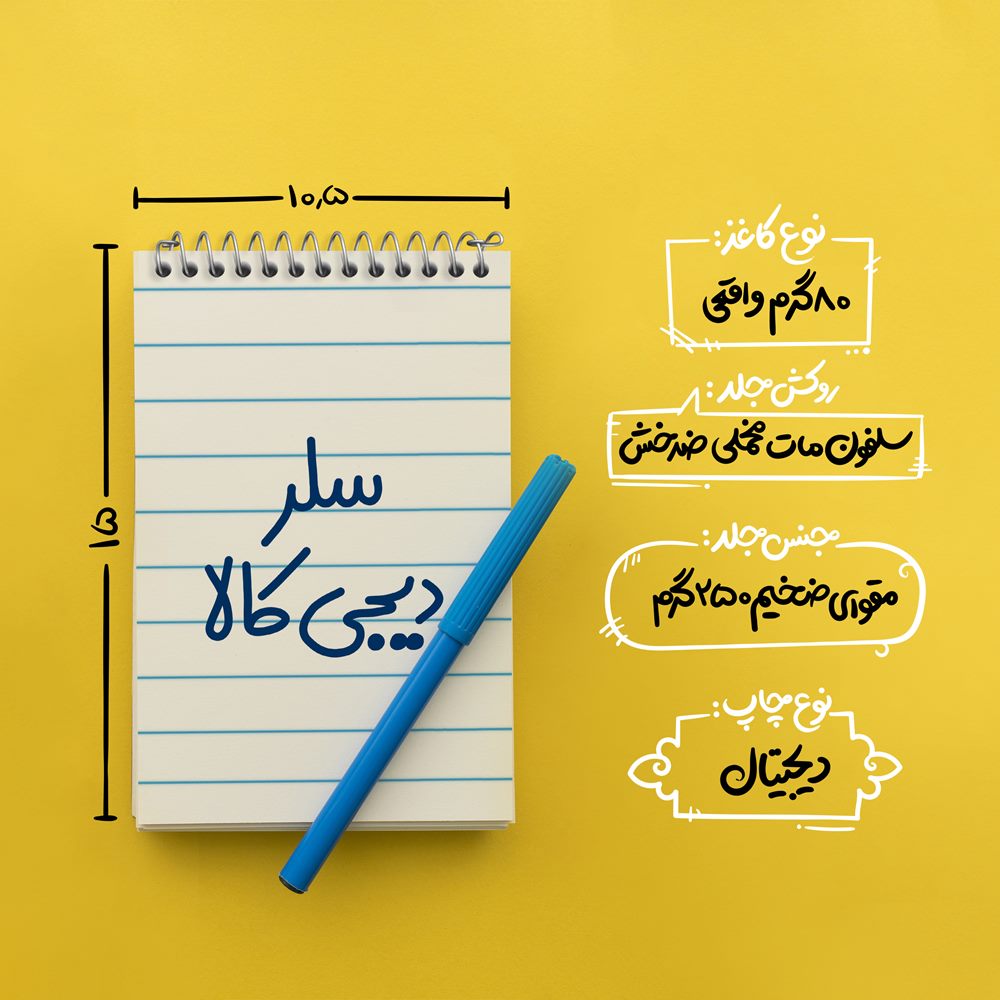 ۱۰٫۵
۱۵
سلر
دیجی کالا
نوع کاغذ:
۸۰گرم واقعی
روکش جلد:
سلفون مات مخملی ضدخش
جنس جلد:
مقوای ضخیم ۲۵۰گرم
نوع چاپ:
دیجیتال